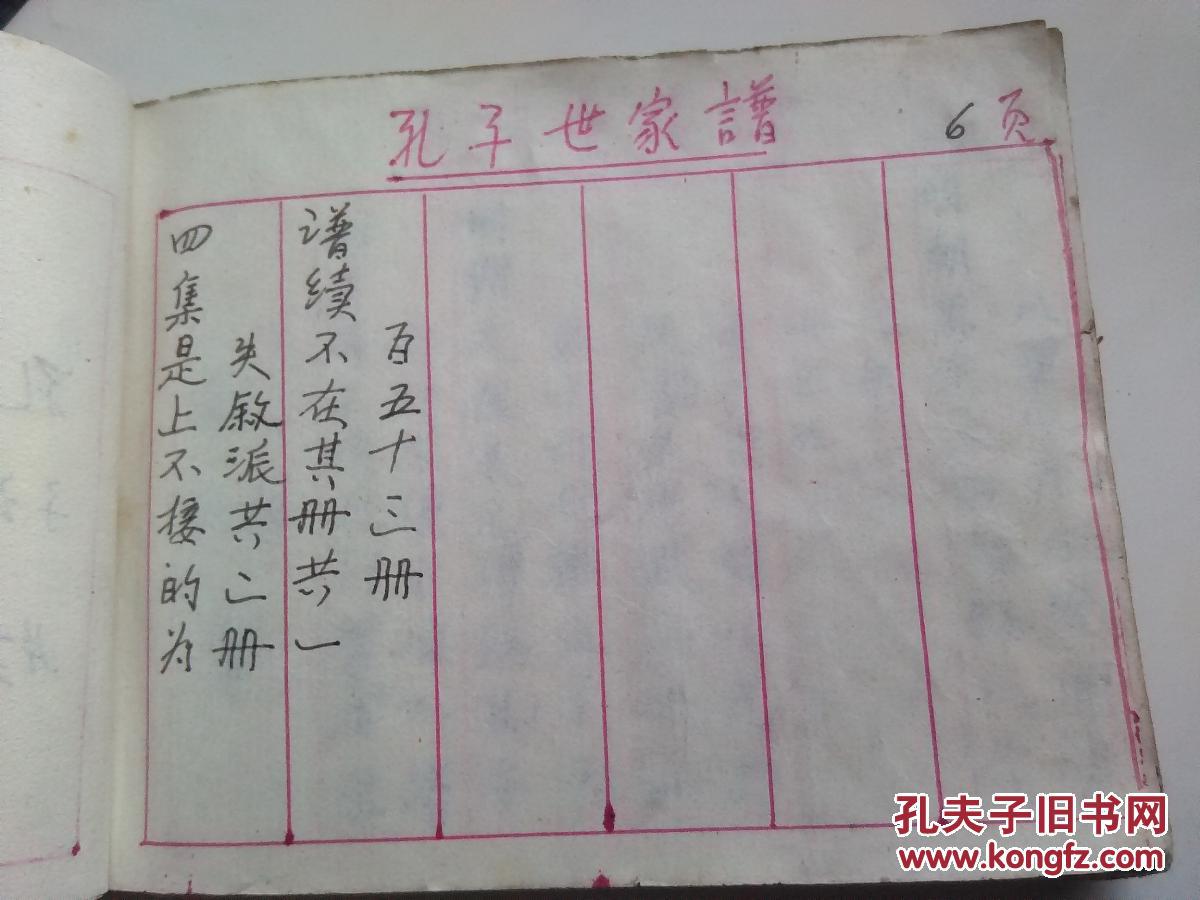 孔子世家譜
6页
四集是上不接的为
失敘派共二册
谱续不在其册共一
百五十三册
孔夫子旧书网
www.kongfz.com